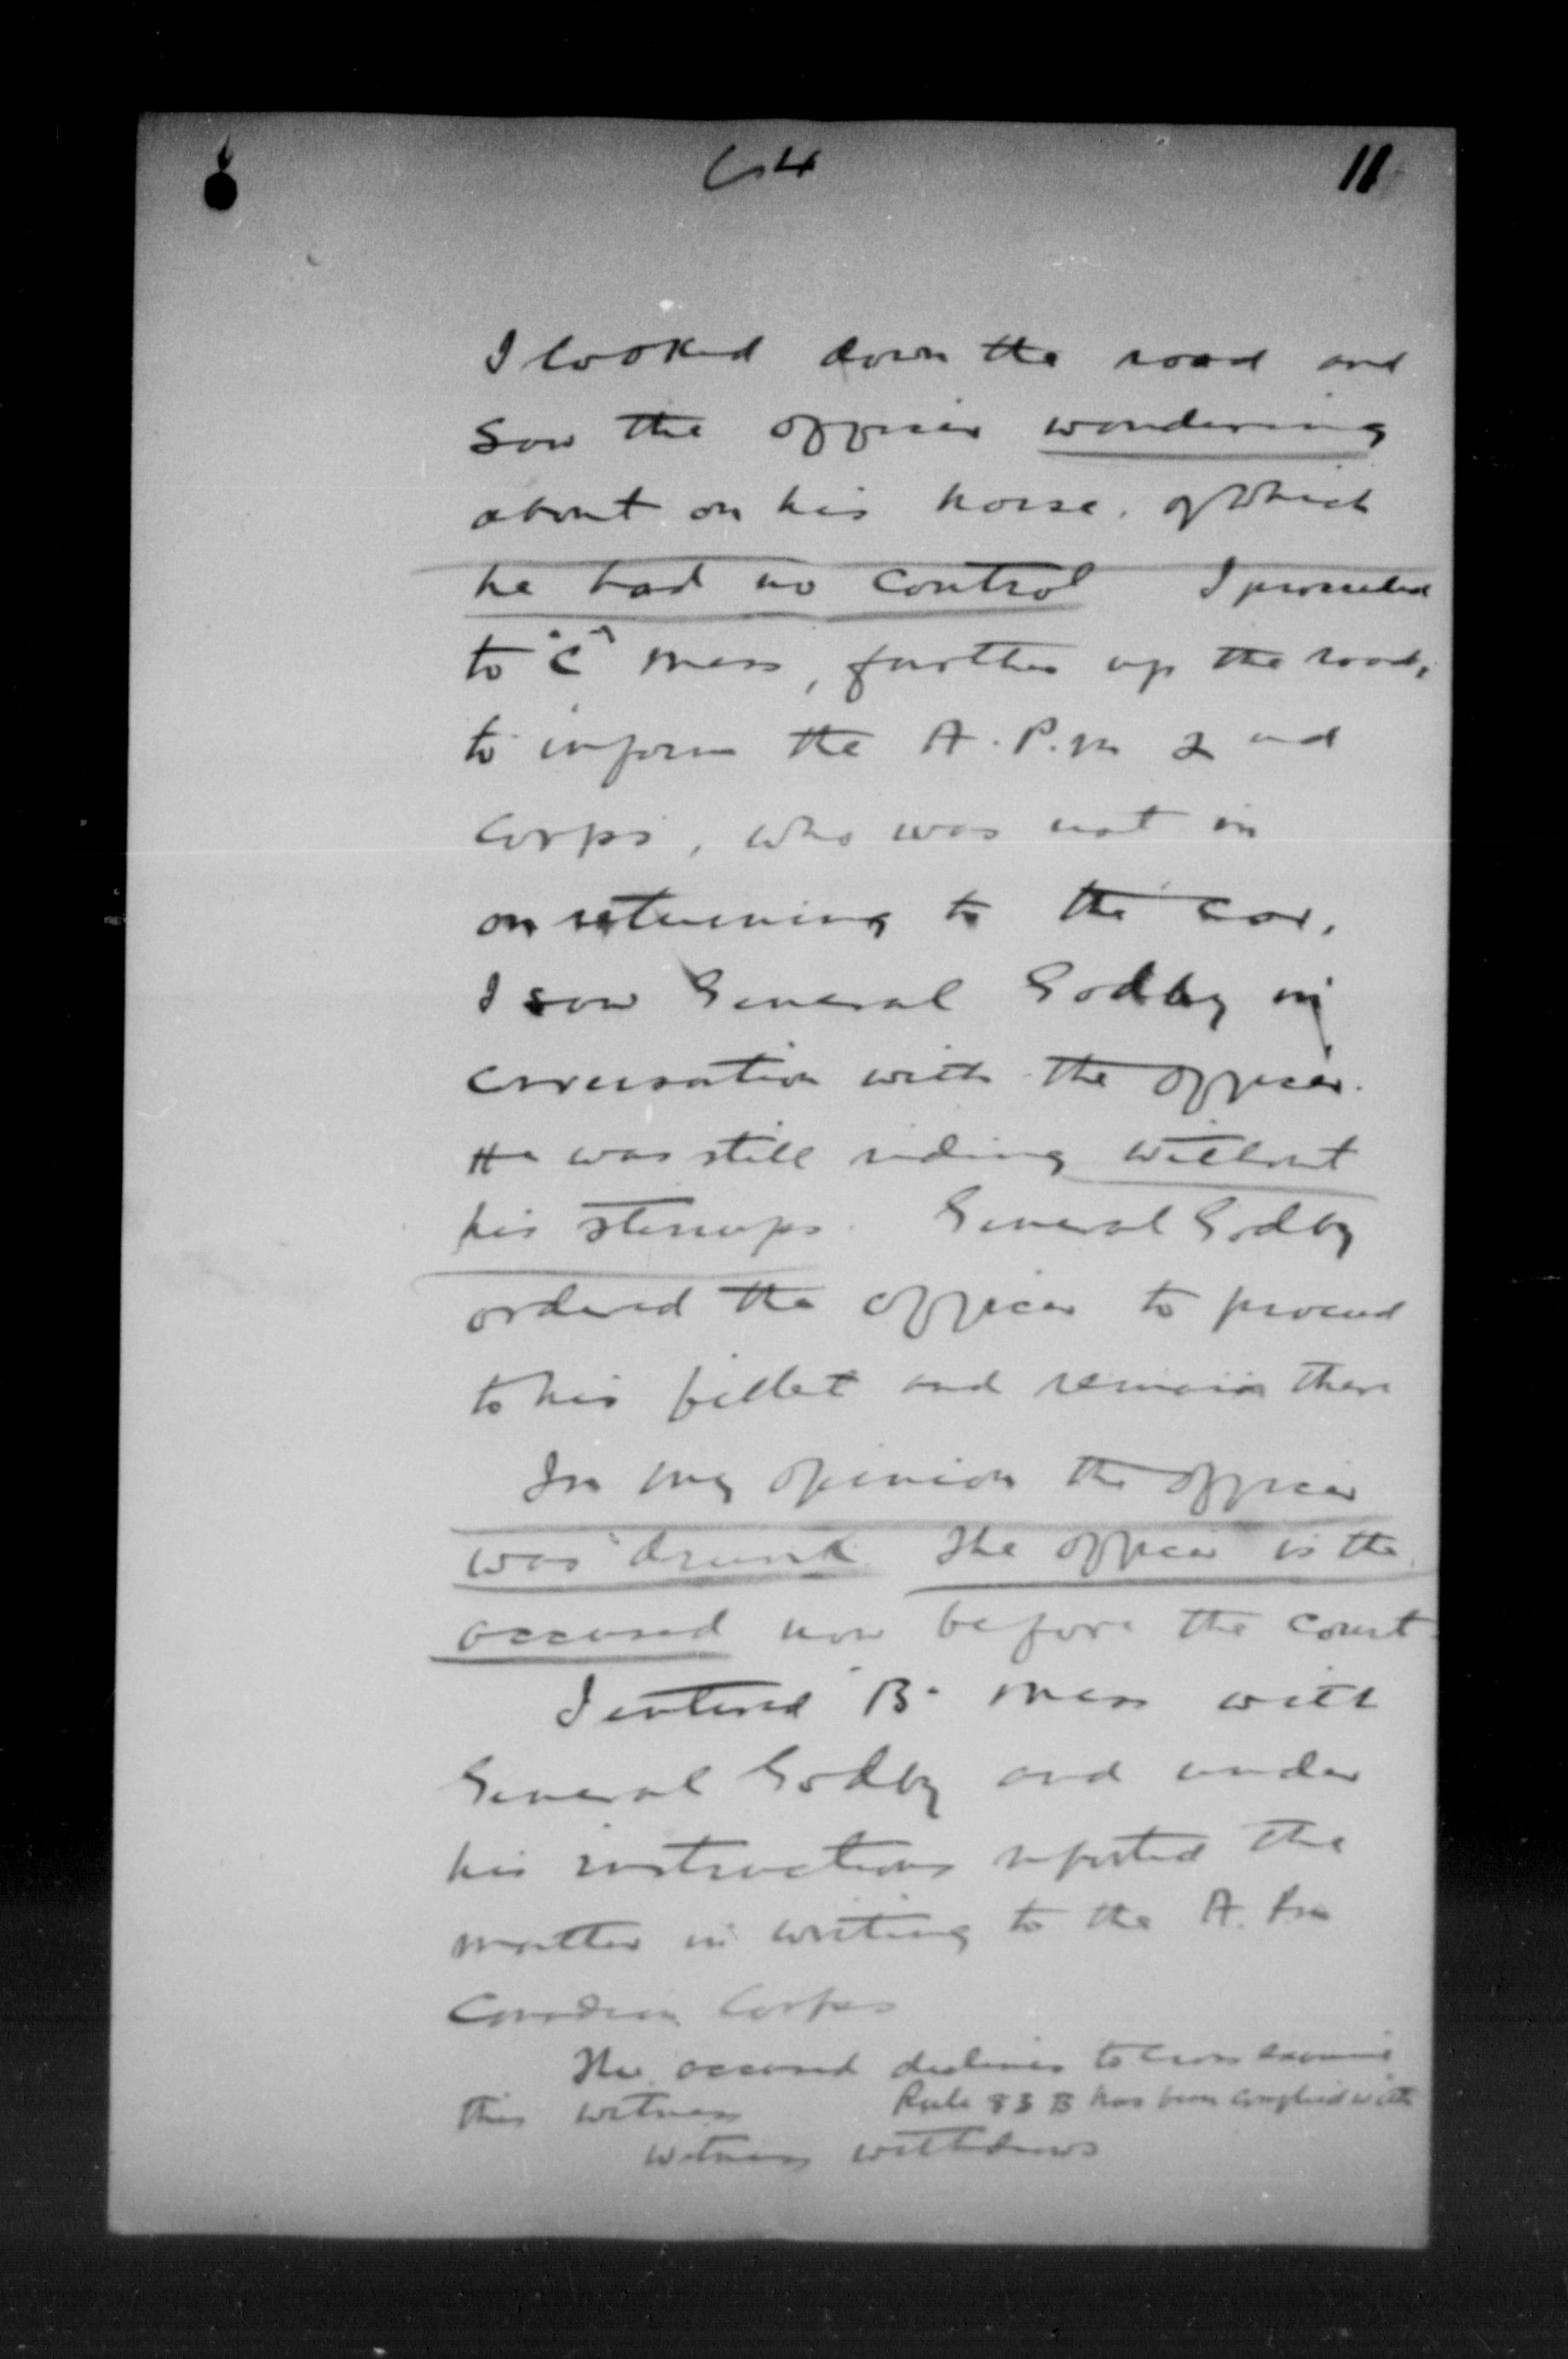 11
I looked down the road and
saw the officer wandering
about on his horse, of which
he had no control I proceeded
to "C" mess, further up the road,
to inform the A.P.M 2nd
Corps, who was not in
on returning to the car,
I saw General Godby in
conversation with the officer.
He was still riding without
his stirrups. General Godby
ordered the officer to proceed
to his billet and remain there
In my opinion the officer
was drunk. The officer is the
accused now before the court.
I entered "B" mess with
General Godby and under
his instructions reported the
matter in writing to the A.P.M
Canadian Corps
The accused declines to cross examine
this witness Rule 83 B has been complied with
Witness withdraws